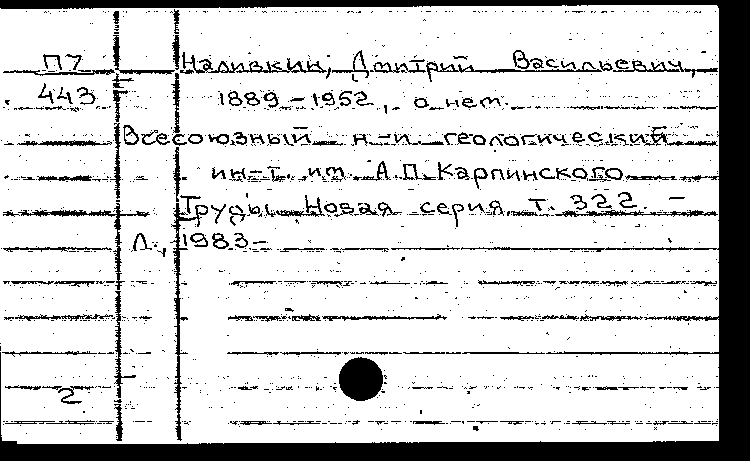 П7 Наливкин, Дмитрий Васильевич,
443 1889-1952, о нем.
Всесоюзный н.-и. геологический
ин-т. им. А.П. Карпинского.
Труды. Новая серия. Т. 322. -
Л., 1983-
2